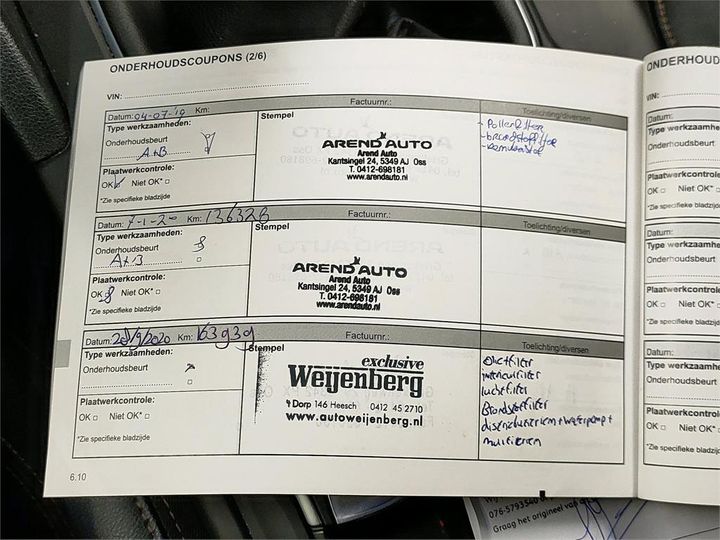 ONDERHOUDSCOUPONS (2/6)
VIN:
Datum: 04-07-'19 Km:
Factuurnr.:
Type werkzaamheden:
Onderhoudsbeurt
A+B
Plaatwerkcontrole:
OK Niet OK*
*Zie specifieke bladzijde
Stempel
AREND AUTO
Arend Auto
Kantsingel 24, 5349 AJ Oss
T. 0412-698181
www.arendauto.nl
Toelichting/diversen
- Pollenfilter
- brandstoffilter
- Remvloeistof
Datum: 7-1-20 Km: 136328
Factuurnr.:
Type werkzaamheden:
Onderhoudsbeurt
A+B
Plaatwerkcontrole:
OK Niet OK*
*Zie specifieke bladzijde
Stempel
AREND AUTO
Kantsingel 24, 5349 AJ Oss
T. 0412-698181
www.arendauto.nl
Toelichting/diversen
Datum: 28/9/2020 Km: 163939
Factuurnr.:
Type werkzaamheden:
Onderhoudsbeurt
Plaatwerkcontrole:
OK Niet OK*
*Zie specifieke bladzijde
Stempel
exclusive
Weijenberg
't Dorp 146 Heesch 0412 45 2710
www.autoweijenberg.nl
Toelichting/diversen
Oliefilter
interieurfilter
luchtfilter
Brandstoffilter
distributieriem + waterpomp +
multiriem
6.10
ONDERHOUD
VIN:
Datum:
Type werkzaamheden
Onderhoudsbeurt
Plaatwerkcontrole:
OK Niet OK*
*Zie specifieke bladzijde
Datum:
Type werkzaamheden
Onderhoudsbeurt
Plaatwerkcontrole:
OK Niet OK*
*Zie specifieke bladzijde
Datum:
Type werkzaam
Onderhoudsbeurt
Plaatwerkcontrole
OK Niet OK
*Zie specifieke bladz
076-5793540
Graag het origineel van